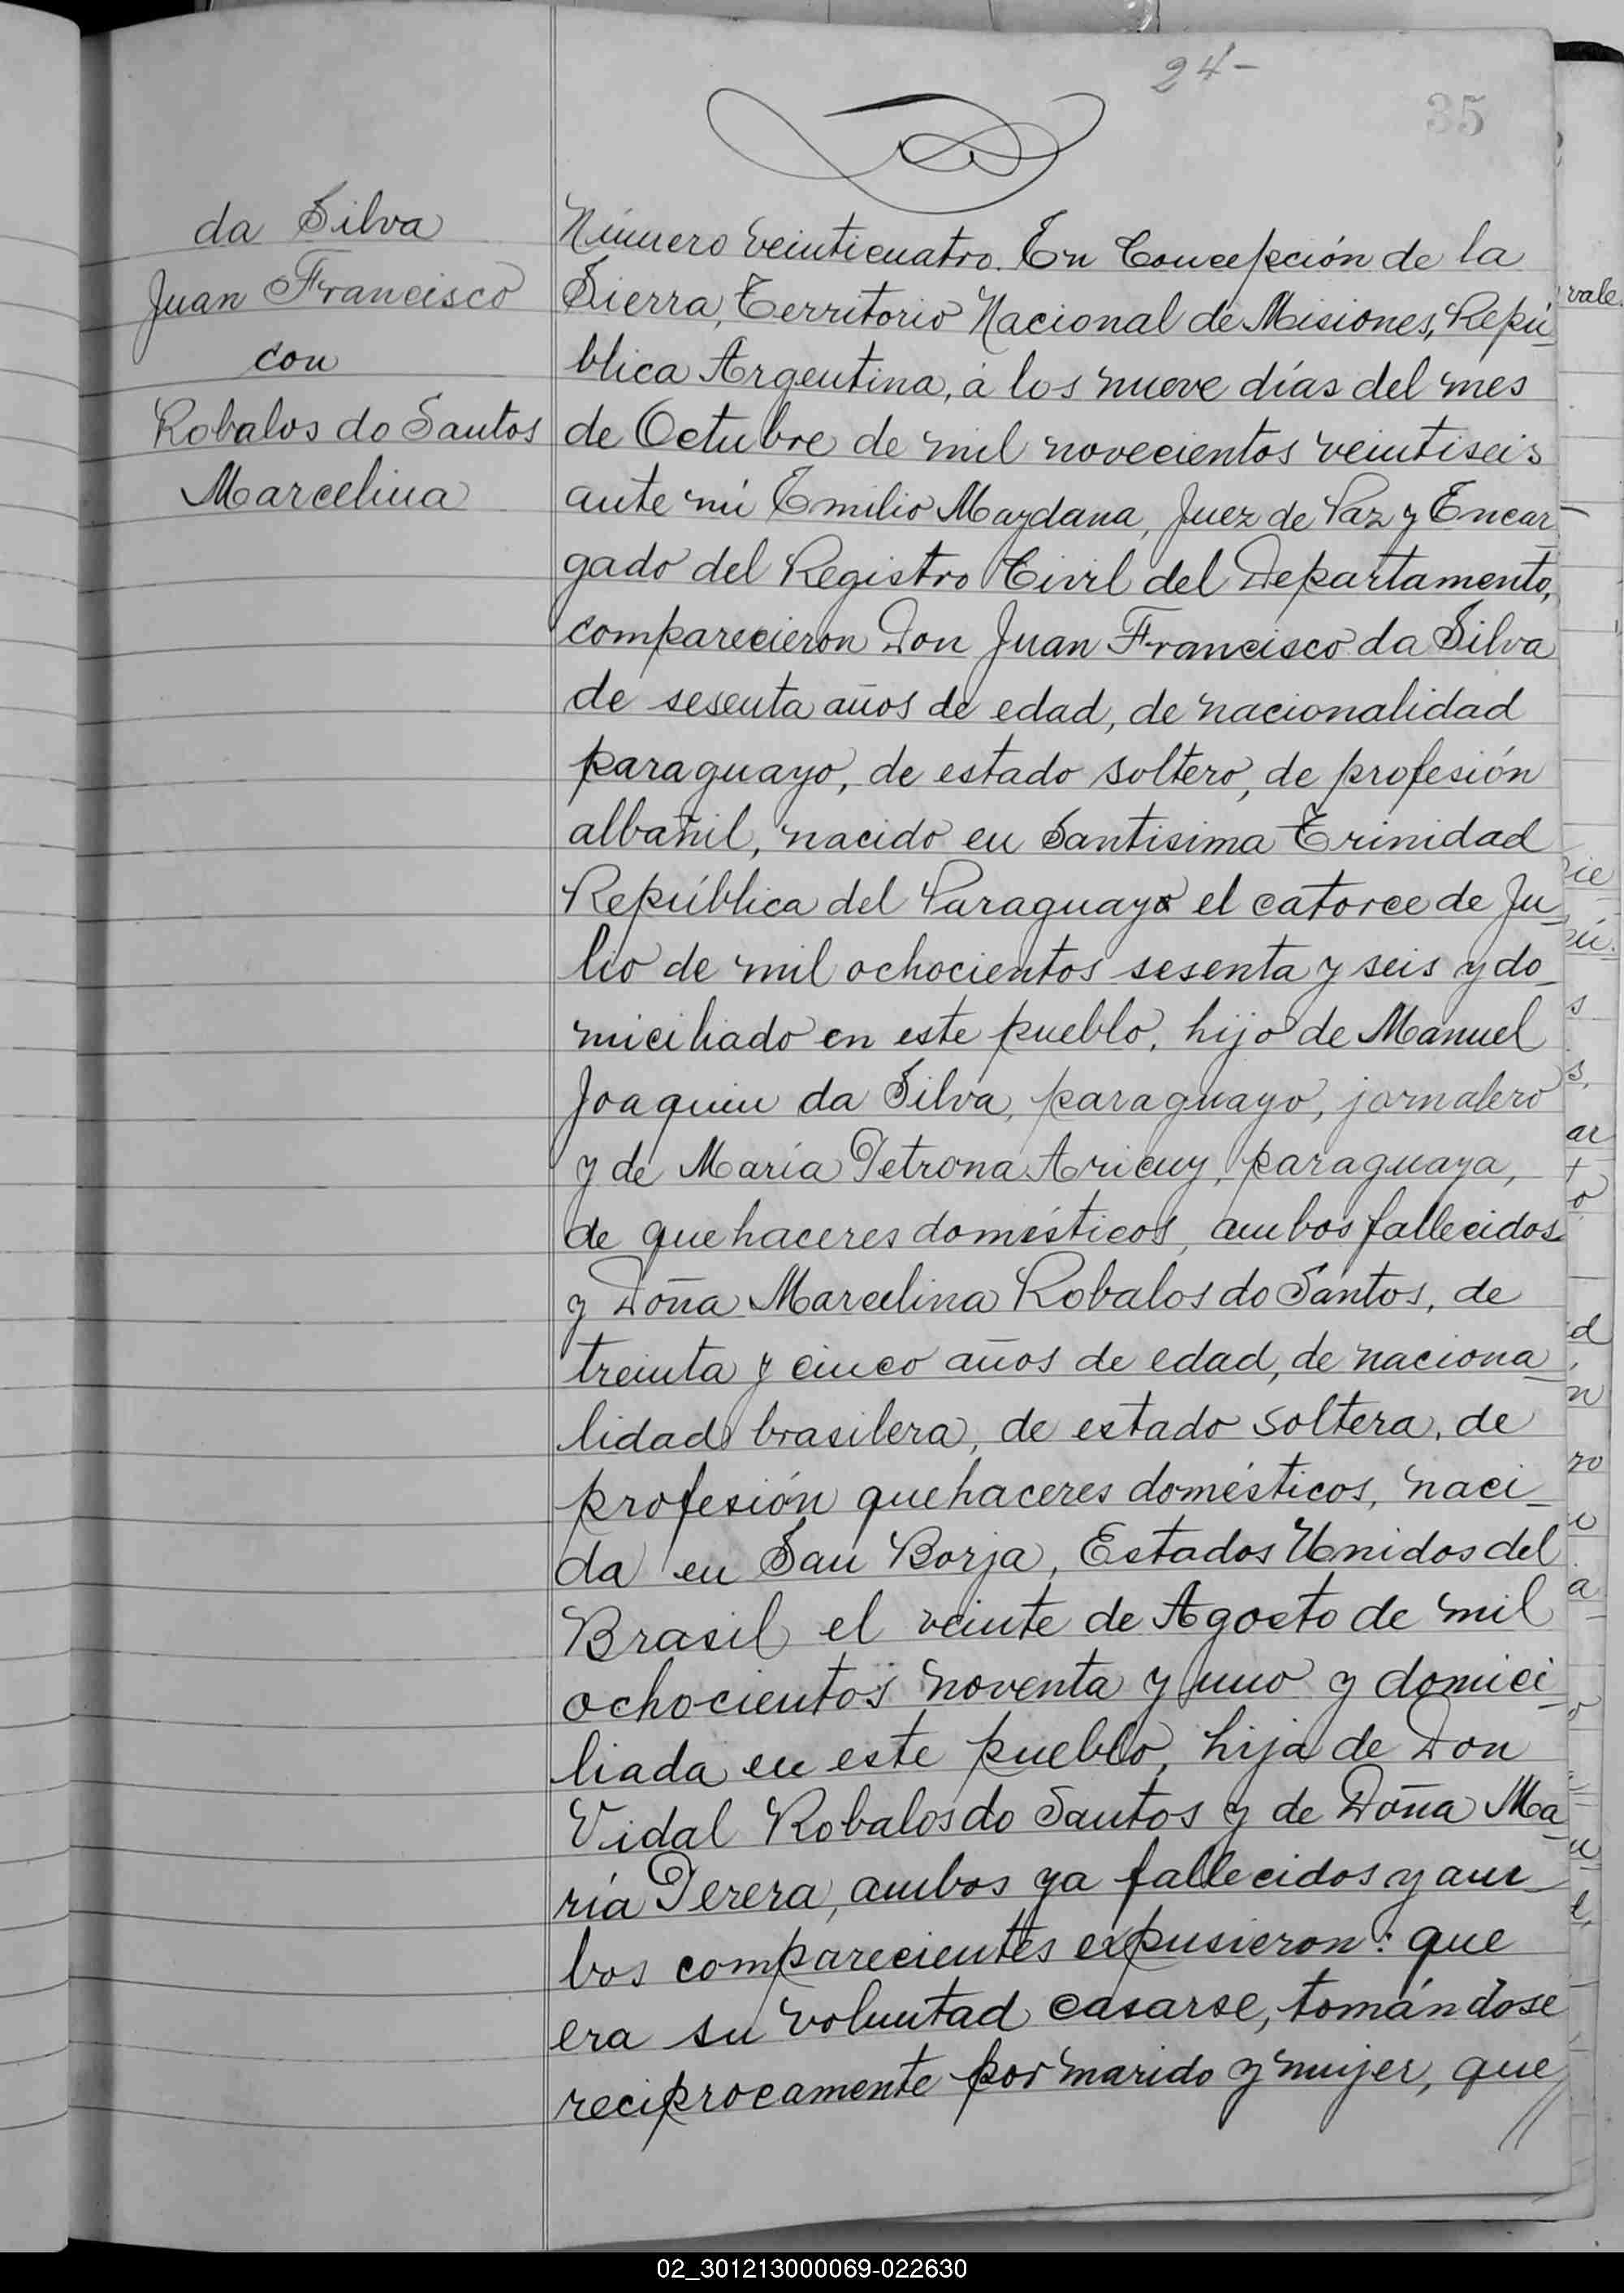 24-
35
da Silva
Juan Francisco
con
Robalos do Santos
Marcelina
Número veinticuatro. En Concepción de la
Sierra, Territorio Nacional de Misiones, Repú
blica Argentina, á los nueve días del mes
de Octubre de mil novecientos veintiseis
ante mí Emilio Maydana, Juez de Paz y Encar
gado del Registro Civil del Departamento,
comparecieron Don Juan Francisco da Silva
de sesenta años de edad, de nacionalidad
paraguayo, de estado soltero, de profesión
albañil, nacido en Santisima Trinidad
República del Paraguay el catorce de Ju_
lio de mil ochocientos sesenta y seis y do_
miciliado en este pueblo, hijo de Manuel
Joaquin da Silva, paraguayo, jornalero
y de María Petrona Aricuy, paraguaya,
de quehaceres domésticos, ambos fallecidos
y Doña Marcelina Robalos do Santos, de
treinta y cinco años de edad, de naciona_
lidad brasilera, de estado soltera, de
profesión quehaceres domésticos, naci_
da en San Borja, Estados Unidos del
Brasil el veinte de Agosto de mil
ochocientos noventa y uno y domici_
liada en este pueblo, hija de Don
Vidal Robalos do Santos y de Doña Ma_
ría Perera, ambos ya fallecidos y am_
bos comparecientes expusieron: que
era su voluntad casarse, tomándose
reciprocamente por marido y mujer, que
//
vale.
02_301213000069-022630